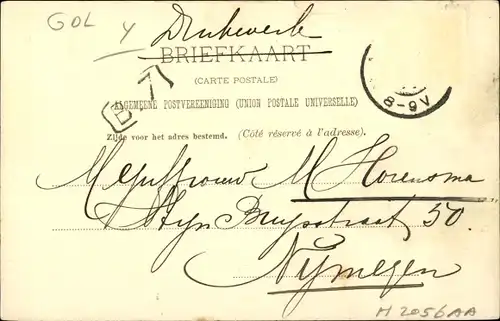 GOL
Y
Drukwerk
BRIEFKAART
(CARTE POSTALE)
ALGEMEENE POSTVEREENIGING (UNION POSTALE UNIVERSELLE)
Zijde voor het adres bestemd. (Côté réservé à l'adresse).
B 7
8-9V
Mejuffrouw M Horensma
Bruysstraat 50.
Nymegen
M 2056AA